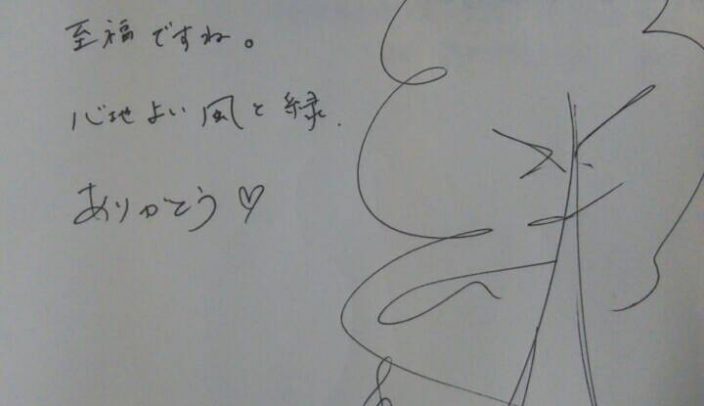 至福ですね。
心地よい風と緑.
ありがとう♡